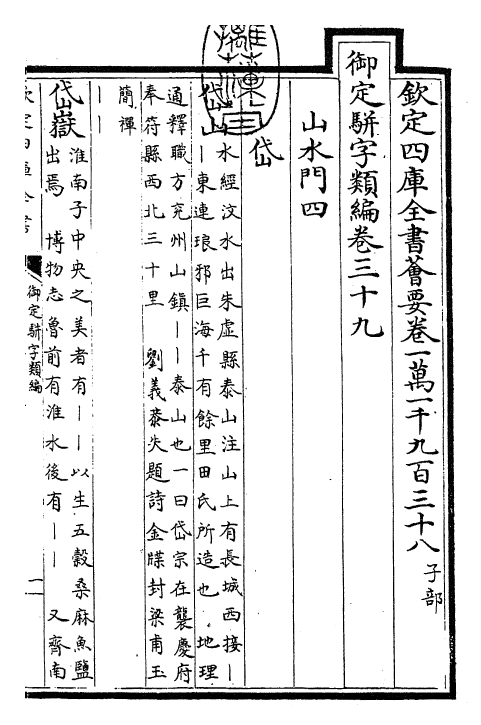 欽定四庫全書薈要卷一萬一千九百三十八 子部
御定駢字類編卷三十九
山水門四
岱
岱山 水經汶水出朱虛縣泰山注山上有長城西接丨
丨東連琅邪巨海千有餘里田氏所造也 地理
通釋職方兗州山鎮丨丨泰山也一曰岱宗在襲慶府
奉符縣西北三十里 劉義恭失題詩金牒封梁甫玉
簡禪
丨丨
岱嶽 淮南子中央之美者有丨丨以生五穀桑麻魚鹽
出焉 博物志魯前有淮水後有丨丨 又齊南
欽定四庫全書
御定駢字類編
一